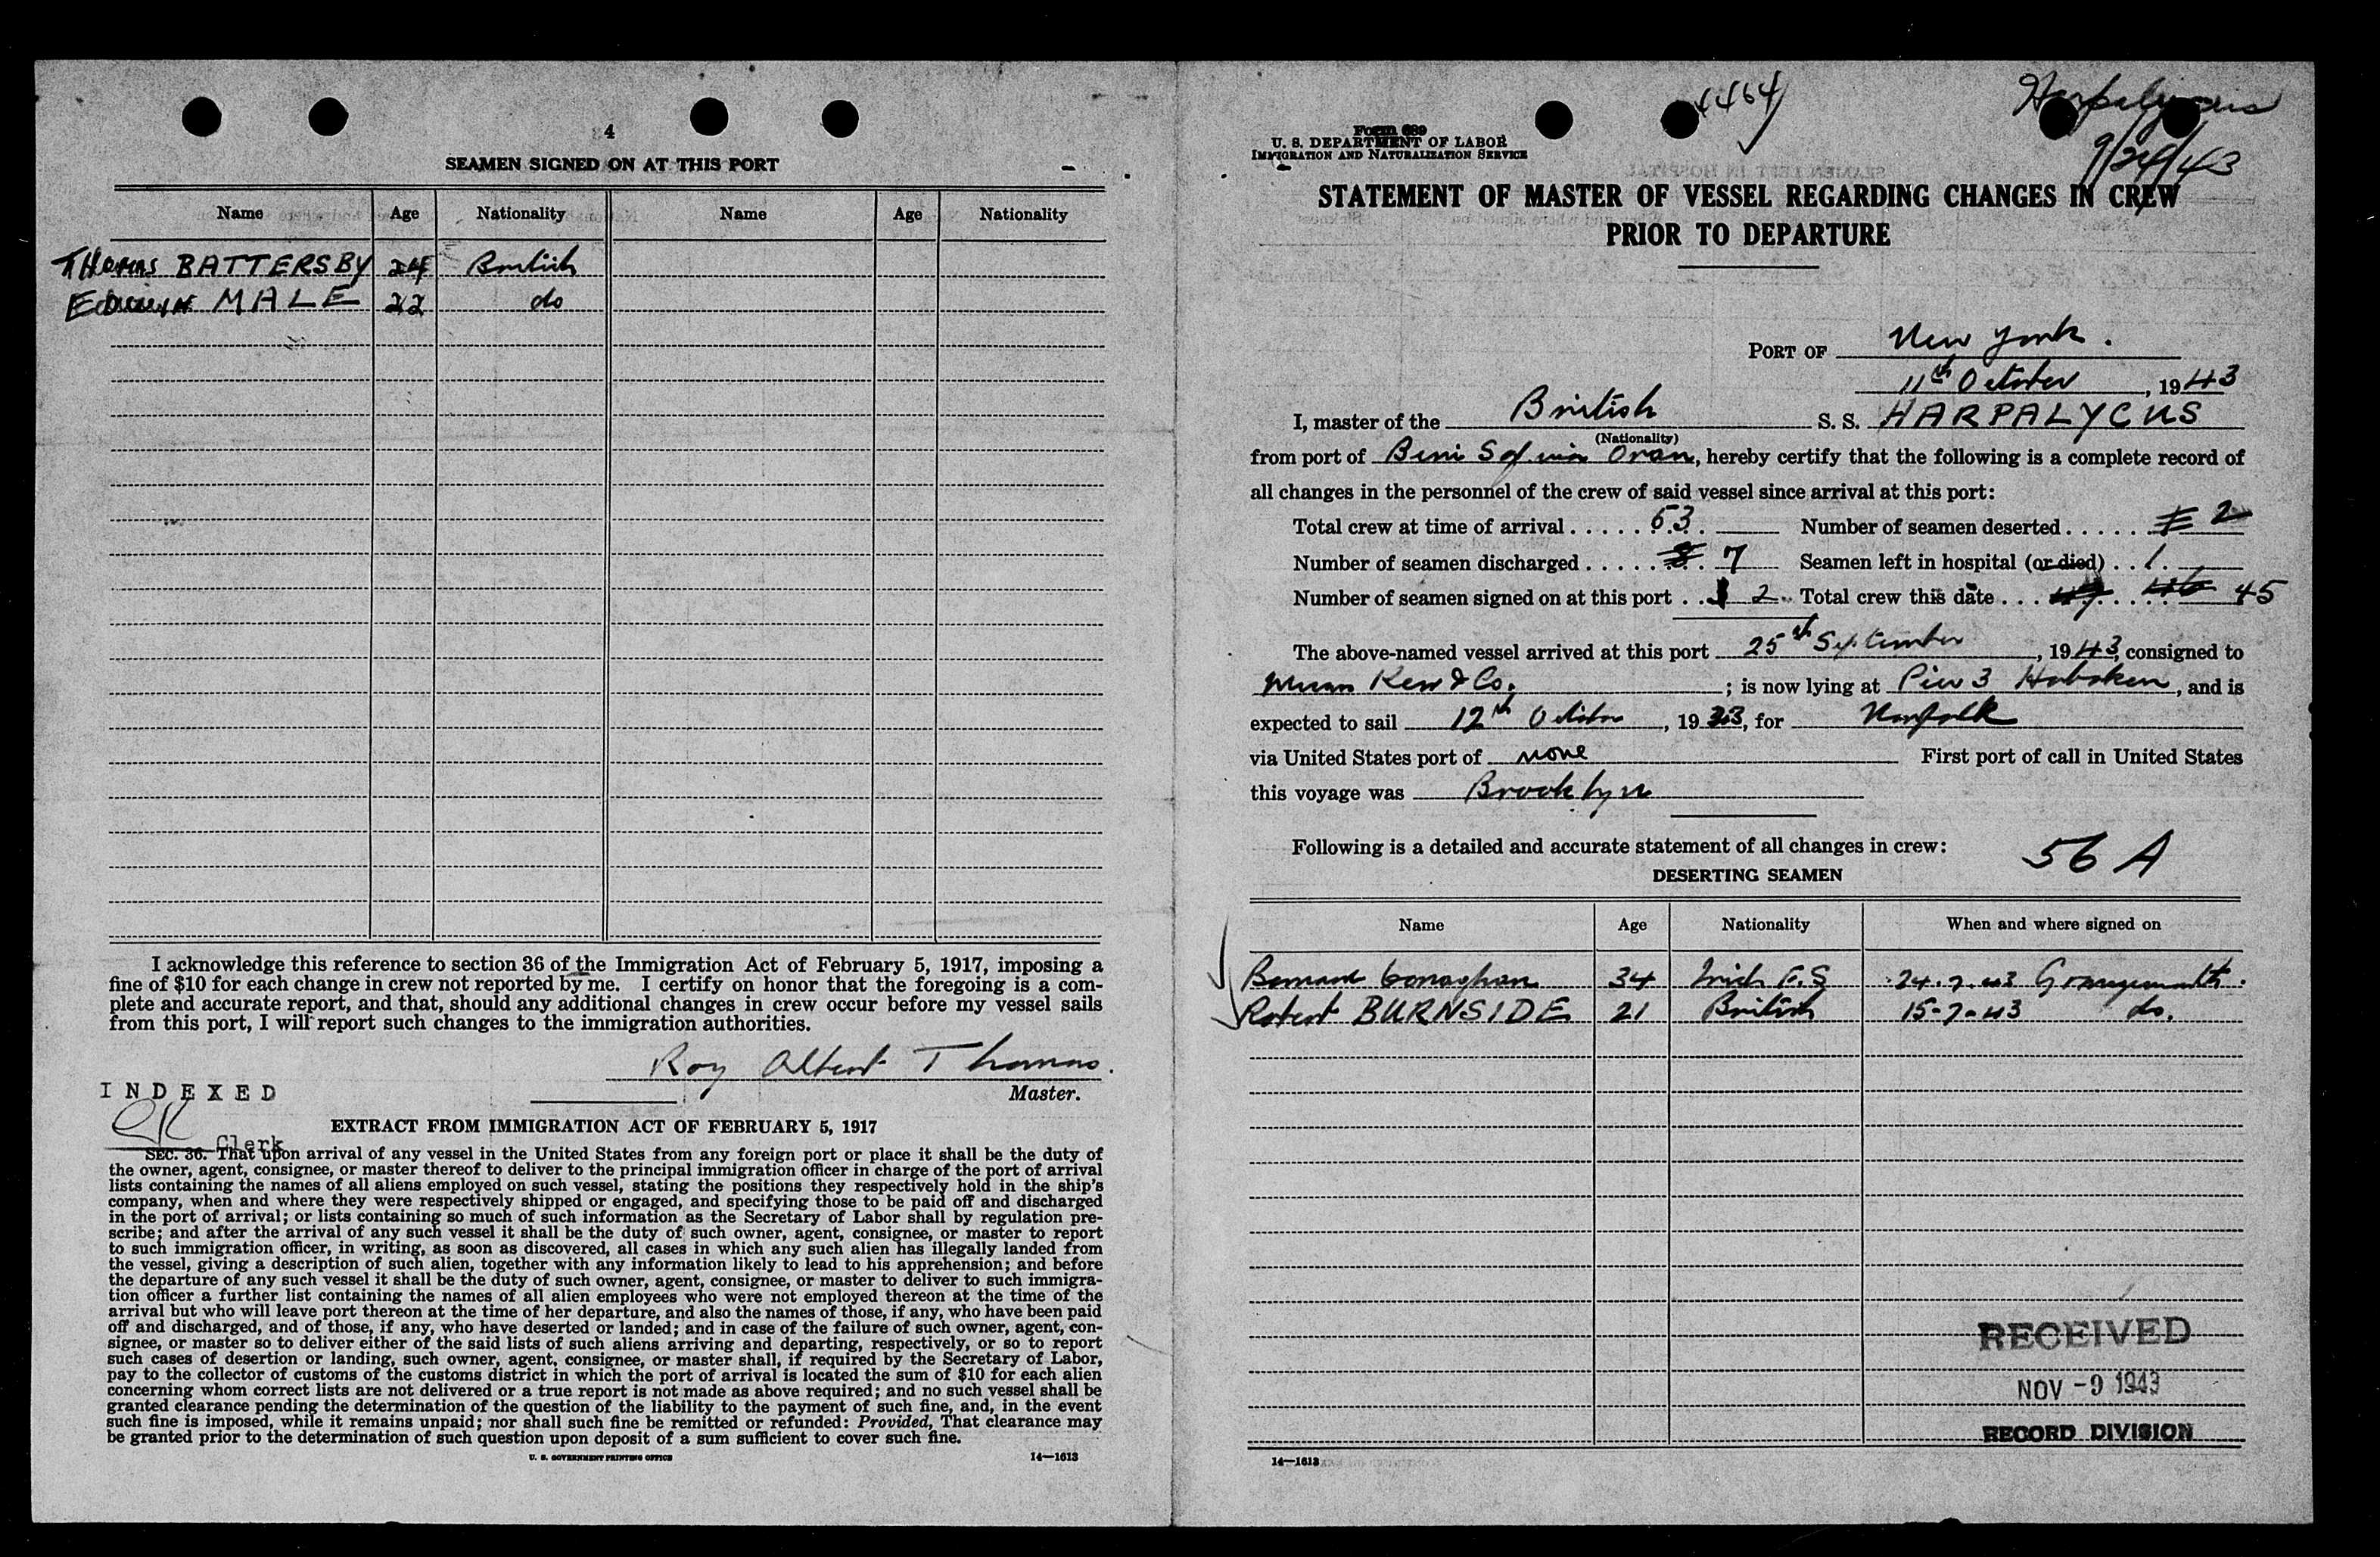 4
SEAMEN SIGNED ON AT THIS PORT
Name Age Nationality Name Age Nationality
Thomas BATTERSBY 24 British
Edwin MALE 22 do
I acknowledge this reference to section 36 of the Immigration Act of February 5, 1917, imposing a
fine of $10 for each change in crew not reported by me. I certify on honor that the foregoing is a com-
plete and accurate report, and that, should any additional changes in crew occur before my vessel sails
from this port, I will report such changes to the immigration authorities.
Roy Albert Thomas.
Master.
INDEXED
Clerk
EXTRACT FROM IMMIGRATION ACT OF FEBRUARY 5, 1917
SEC. 36. That upon arrival of any vessel in the United States from any foreign port or place it shall be the duty of
the owner, agent, consignee, or master thereof to deliver to the principal immigration officer in charge of the port of arrival
lists containing the names of all aliens employed on such vessel, stating the positions they respectively hold in the ship's
company, when and where they were respectively shipped or engaged, and specifying those to be paid off and discharged
in the port of arrival; or lists containing so much of such information as the Secretary of Labor shall by regulation pre-
scribe; and after the arrival of any such vessel it shall be the duty of such owner, agent, consignee, or master to report
to such immigration officer, in writing, as soon as discovered, all cases in which any such alien has illegally landed from
the vessel, giving a description of such alien, together with any information likely to lead to his apprehension; and before
the departure of any such vessel it shall be the duty of such owner, agent, consignee, or master to deliver to such immigra-
tion officer a further list containing the names of all alien employees who were not employed thereon at the time of the
arrival but who will leave port thereon at the time of her departure, and also the names of those, if any, who have been paid
off and discharged, and of those, if any, who have deserted or landed; and in case of the failure of such owner, agent, con-
signee, or master so to deliver either of the said lists of such aliens arriving and departing, respectively, or so to report
such cases of desertion or landing, such owner, agent, consignee, or master shall, if required by the Secretary of Labor,
pay to the collector of customs of the customs district in which the port of arrival is located the sum of $10 for each alien
concerning whom correct lists are not delivered or a true report is not made as above required; and no such vessel shall be
granted clearance pending the determination of the question of the liability to the payment of such fine, and, in the event
such fine is imposed, while it remains unpaid; nor shall such fine be remitted or refunded: Provided, That clearance may
be granted prior to the determination of such question upon deposit of a sum sufficient to cover such fine.
U. S. GOVERNMENT PRINTING OFFICE 14—1613
4464
Harpalycus
9/24/43
Form 689
U. S. DEPARTMENT OF LABOR
IMMIGRATION AND NATURALIZATION SERVICE
STATEMENT OF MASTER OF VESSEL REGARDING CHANGES IN CREW
PRIOR TO DEPARTURE
PORT OF New York.
11th October, 1943
I, master of the British S. S. HARPALYCUS
(Nationality)
from port of Beni Saf via Oran, hereby certify that the following is a complete record of
all changes in the personnel of the crew of said vessel since arrival at this port:
Total crew at time of arrival ..... 53. Number of seamen deserted ...... 2
Number of seamen discharged ..... 8 7 Seamen left in hospital (or died) .. 1.
Number of seamen signed on at this port .. 2 Total crew this date ... 47 46 45
The above-named vessel arrived at this port 25th September, 1943, consigned to
Kerr & Co.; is now lying at Pier 3 Hoboken, and is
expected to sail 12th October, 1943, for Norfolk
via United States port of none First port of call in United States
this voyage was Brooklyn
Following is a detailed and accurate statement of all changes in crew:
56 A
DESERTING SEAMEN
Name Age Nationality When and where signed on
Bernard Conaghan 34 Irish F.S 24.7.43 Grangemouth.
Robert BURNSIDE 21 British 15-7-43 do.
RECEIVED
NOV -9 1943
RECORD DIVISION
14—1613